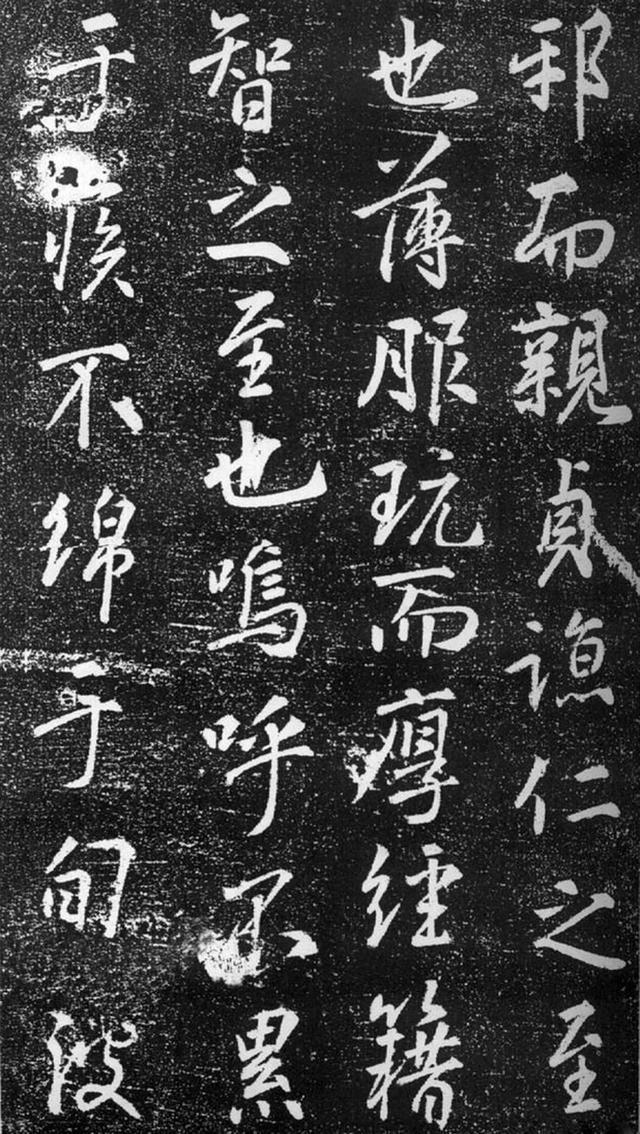 邪而親貞諒仁之至
也薄服玩而厚經籍
智之至也嗚呼不累
于疾不綿于旬